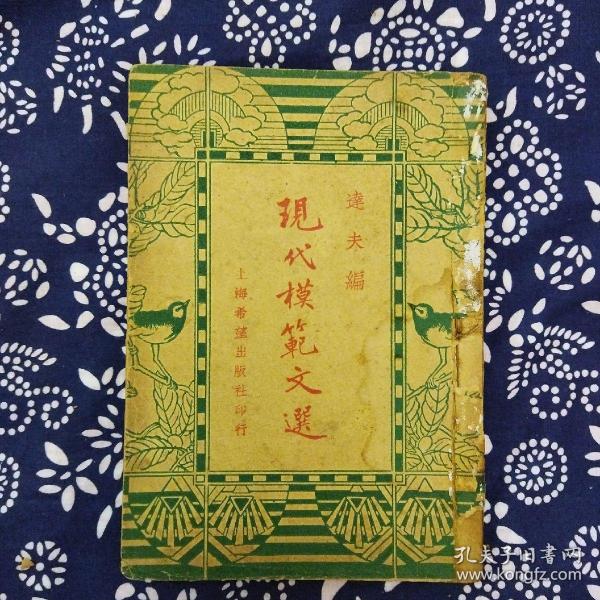 達夫編
現代模範文選
上海希望出版社印行
孔夫子旧書网
www.kongfz.com